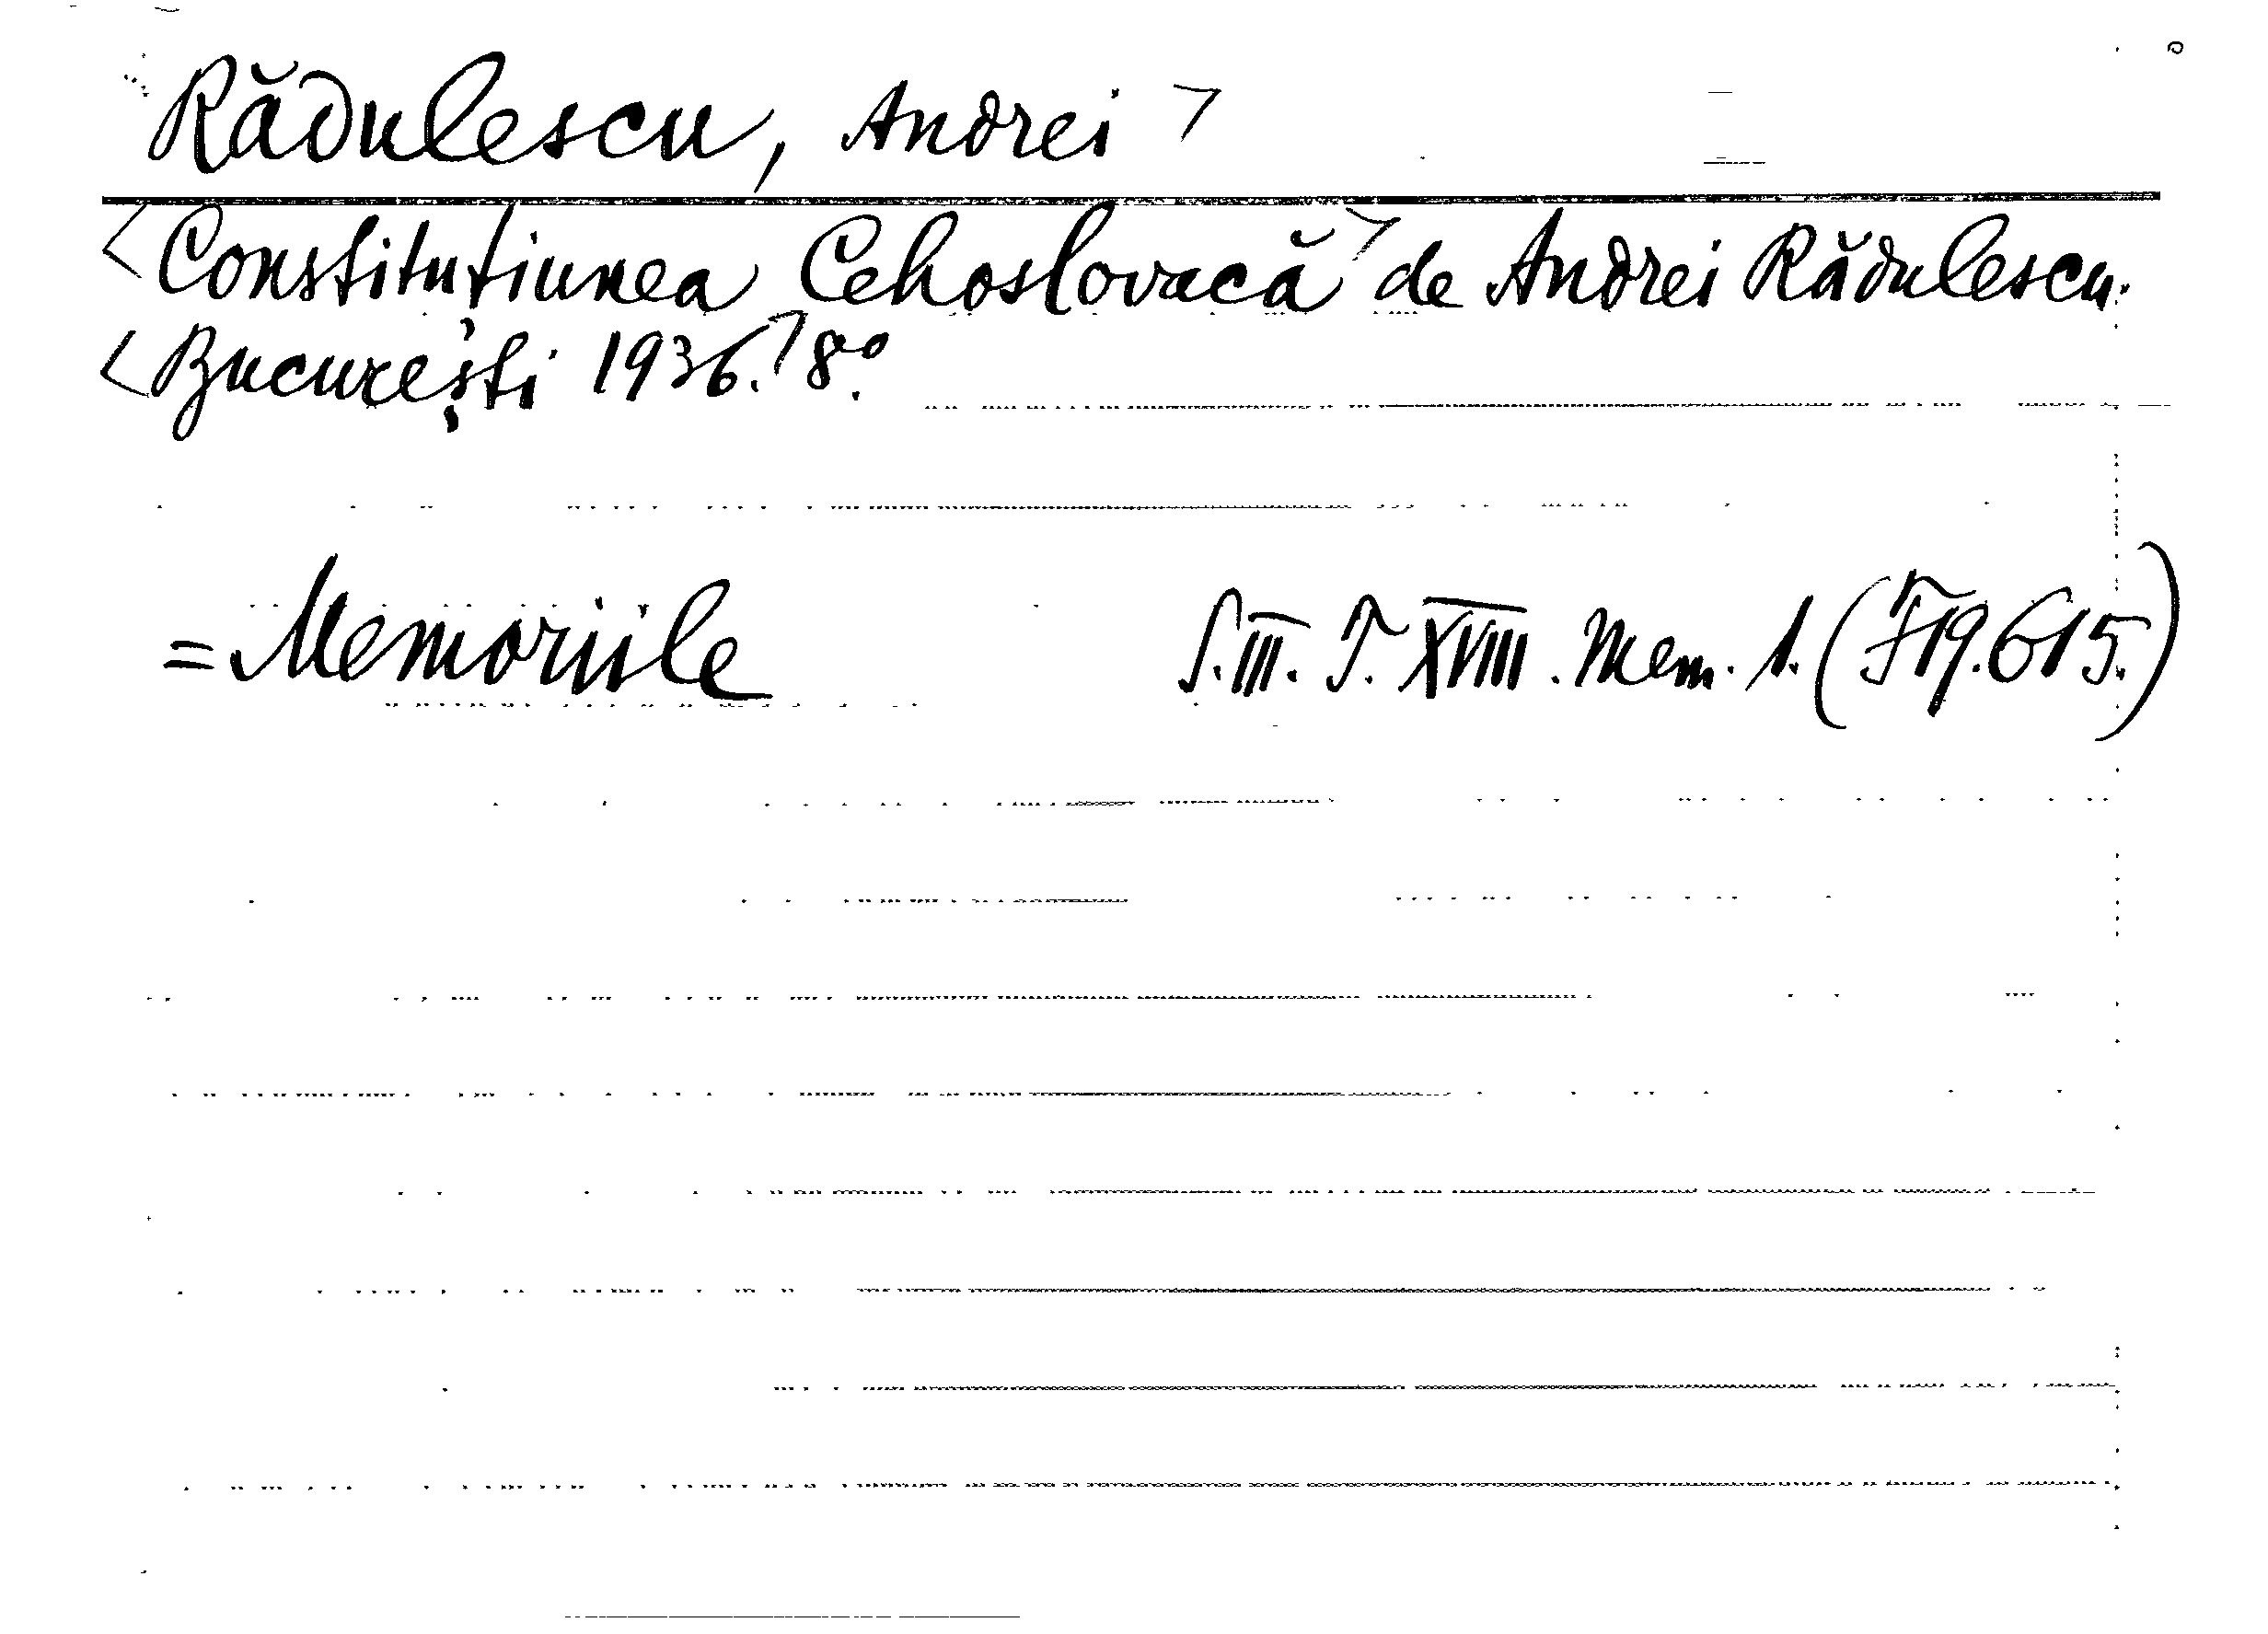 Rădulescu, Andrei >
<Constituțiunea Cehoslovacă> de Andrei Rădulescu.
<București 1936.> 8°.
= Memoriile S. III. T. XVIII. Mem. 1. (I 19.615.)